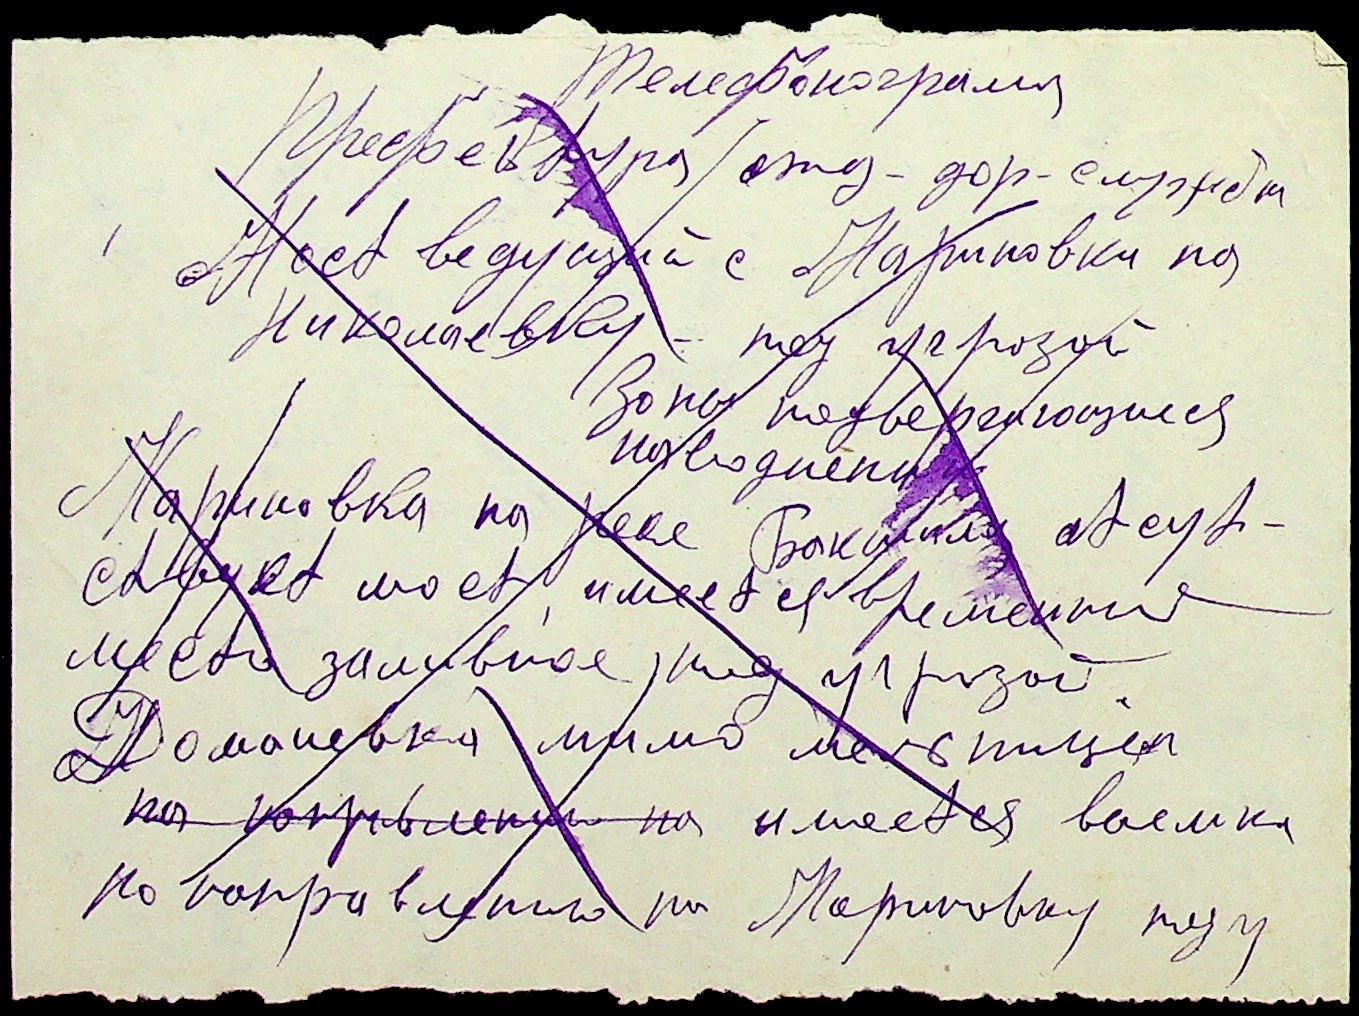 Телефонограмма
Префектура / отд- дор- службы
Мост ведущий с Мариновки на
Николаевку - под угрозой
Зоны подвергающиеся
наводнени
Мариновка на реке Бакшала отсут-
ствует мост, имеется временный
место заливное, под угрозой.
Доманевка мимо мельницы
на направлении на имеется выемка
по направлению на Мариновку под у